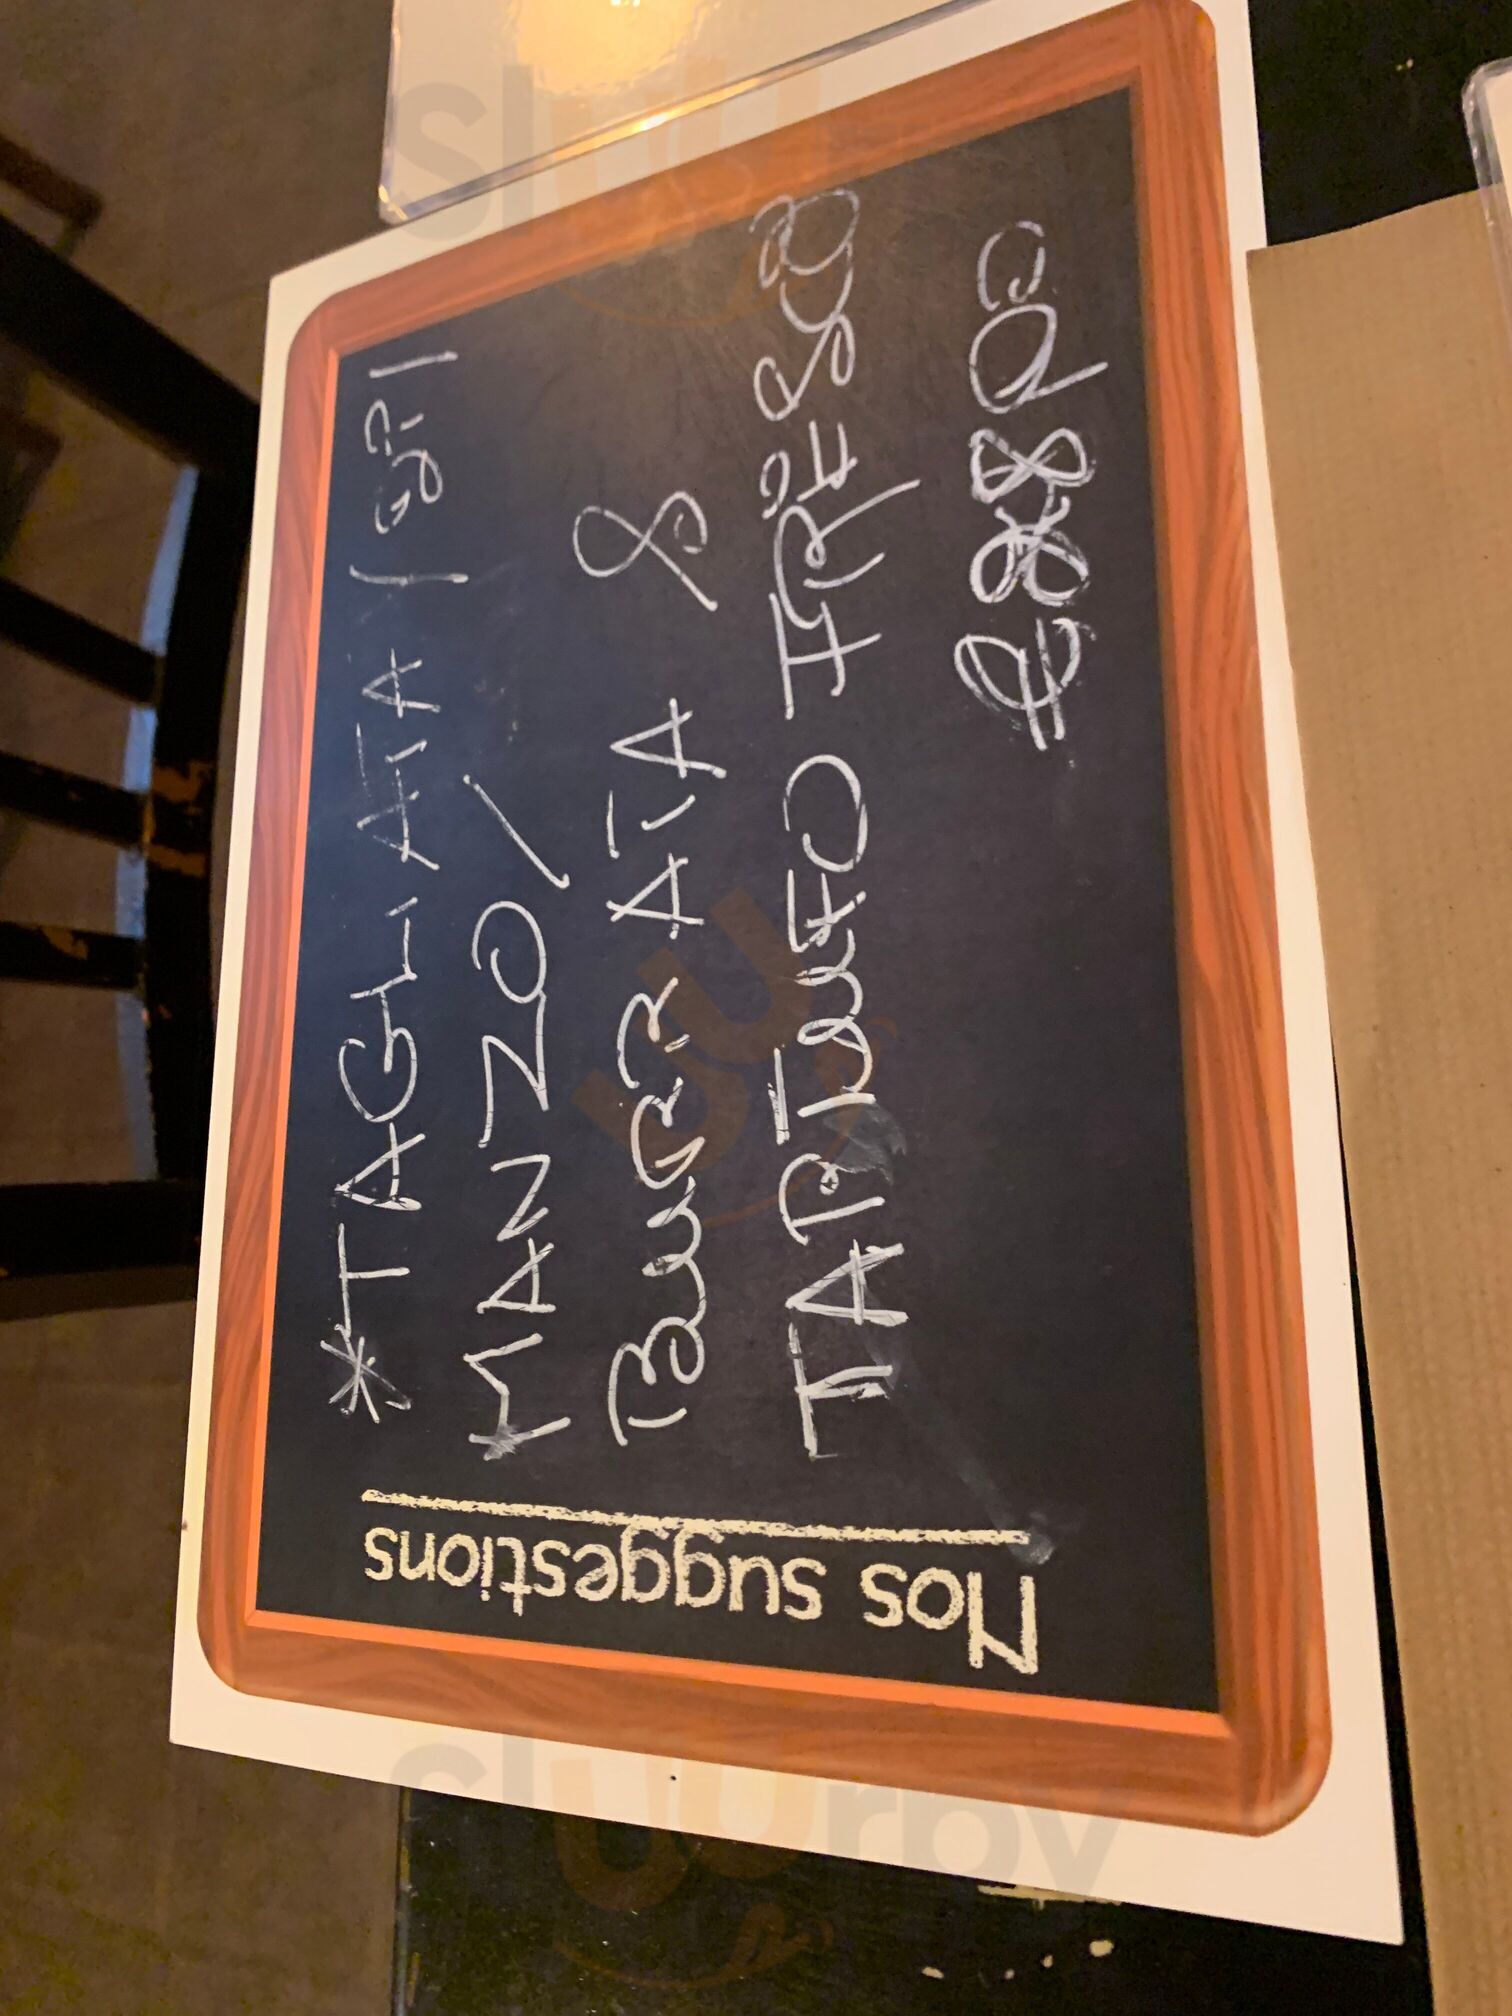 Nos suggestions
*TAGLIATA
MANZO /
BURRATA &
TARTUFO FRESCO
sluurpy